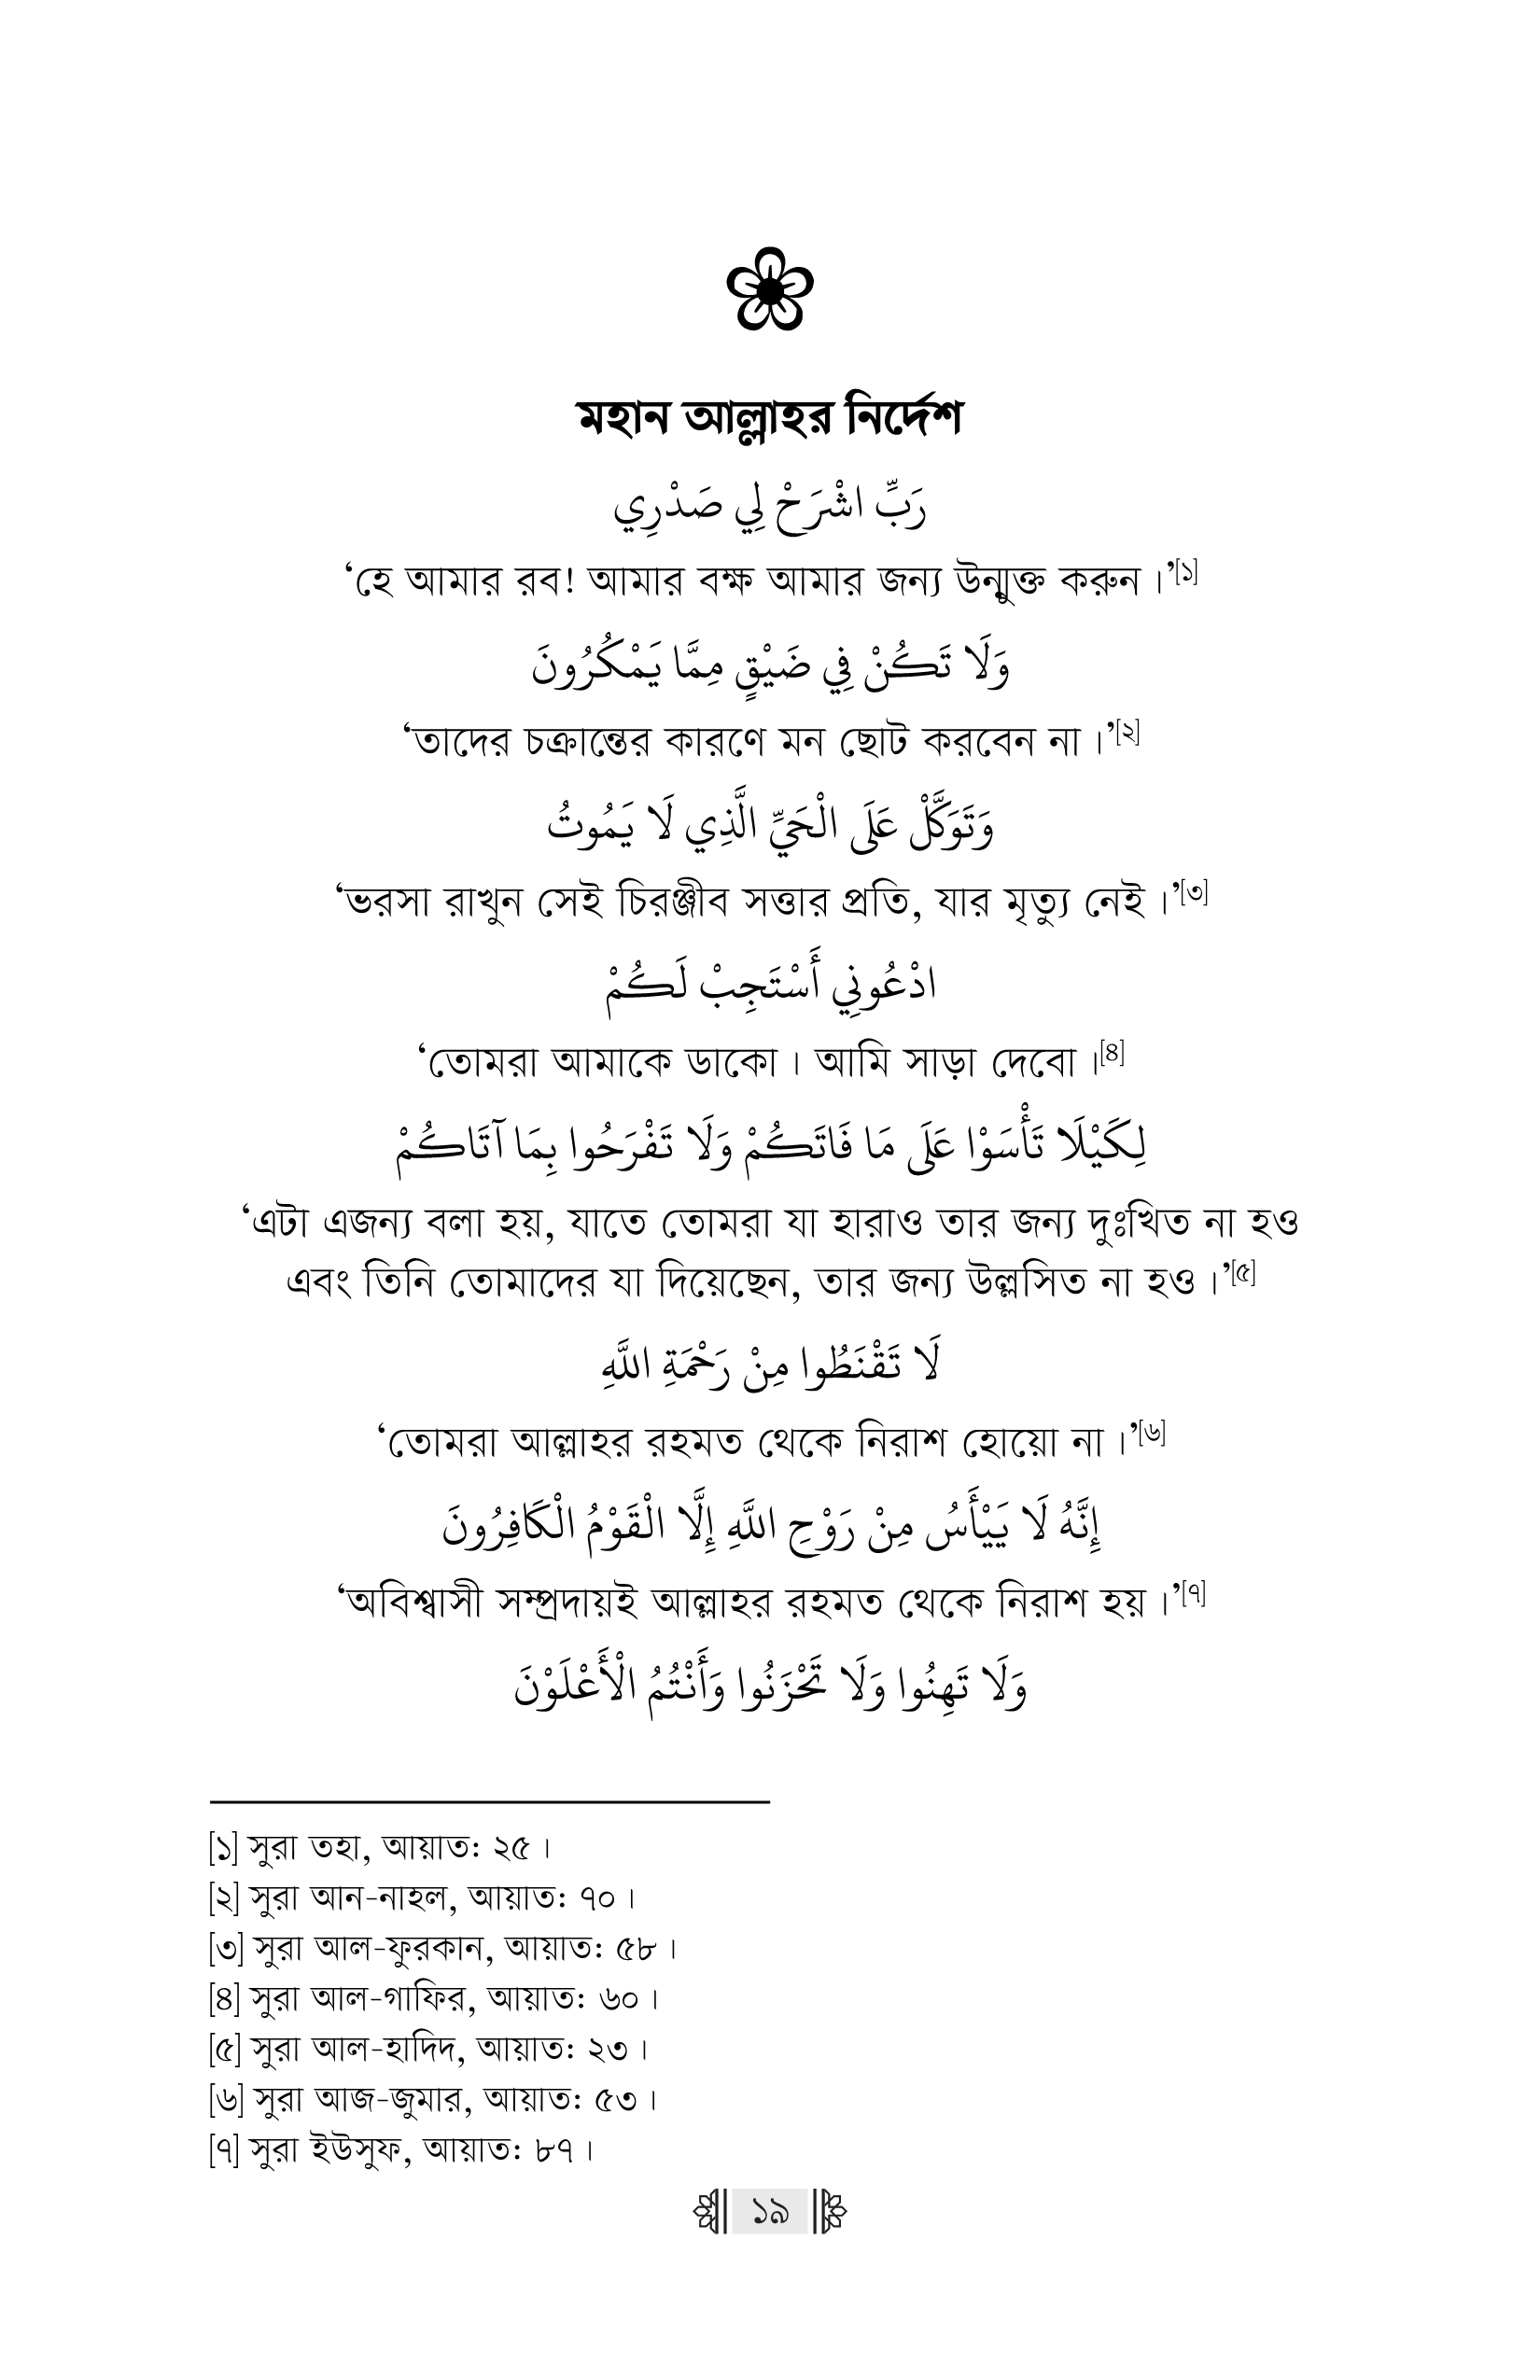 মহান আল্লাহর নির্দেশ
رَبِّ اشْرَحْ لِي صَدْرِي
‘হে আমার রব! আমার বক্ষ আমার জন্য উন্মুক্ত করুন।’[১]
وَلَا تَكُنْ فِي ضَيْقٍ مِمَّا يَمْكُرُونَ
‘তাদের চক্রান্তের কারণে মন ছোট করবেন না।’[২]
وَتَوَكَّلْ عَلَى الْحَيِّ الَّذِي لَا يَمُوتُ
‘ভরসা রাখুন সেই চিরঞ্জীব সত্তার প্রতি, যার মৃত্যু নেই।’[৩]
ادْعُونِي أَسْتَجِبْ لَكُمْ
‘তোমরা আমাকে ডাকো। আমি সাড়া দেবো।[৪]
لِكَيْلَا تَأْسَوْا عَلَى مَا فَاتَكُمْ وَلَا تَفْرَحُوا بِمَا آتَاكُمْ
‘এটা এজন্য বলা হয়, যাতে তোমরা যা হারাও তার জন্য দুঃখিত না হও
এবং তিনি তোমাদের যা দিয়েছেন, তার জন্য উল্লসিত না হও।’[৫]
لَا تَقْنَطُوا مِنْ رَحْمَةِ اللَّهِ
‘তোমরা আল্লাহর রহমত থেকে নিরাশ হোয়ো না।’[৬]
إِنَّهُ لَا يَيْأَسُ مِنْ رَوْحِ اللَّهِ إِلَّا الْقَوْمُ الْكَافِرُونَ
‘অবিশ্বাসী সম্প্রদায়ই আল্লাহর রহমত থেকে নিরাশ হয়।’[৭]
وَلَا تَهِنُوا وَلَا تَحْزَنُوا وَأَنْتُمُ الْأَعْلَوْنَ
[১] সুরা তহা, আয়াত: ২৫।
[২] সুরা আন-নাহল, আয়াত: ৭০।
[৩] সুরা আল-ফুরকান, আয়াত: ৫৮।
[৪] সুরা আল-গাফির, আয়াত: ৬০।
[৫] সুরা আল-হাদিদ, আয়াত: ২৩।
[৬] সুরা আজ-জুমার, আয়াত: ৫৩।
[৭] সুরা ইউসুফ, আয়াত: ৮৭।
১৯